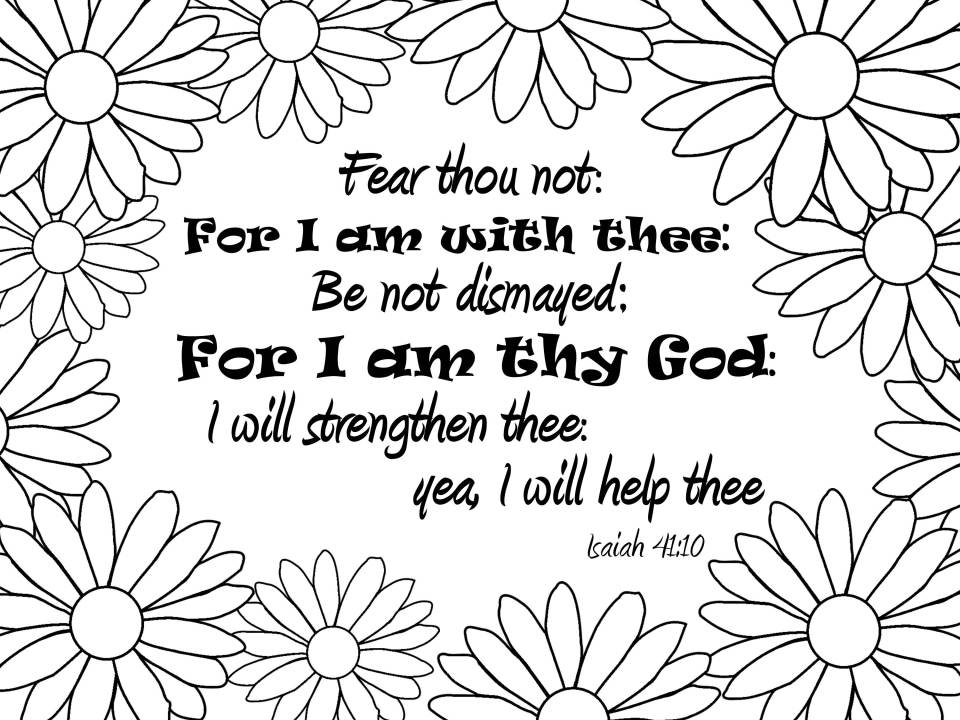 Fear thou not:
For I am with thee:
Be not dismayed;
For I am thy God:
I will strengthen thee:
yea, I will help thee
Isaiah 41:10